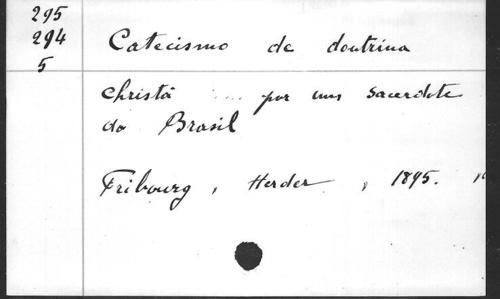 295
294
5
Catecismo de doutrina
christã .... por um sacerdote
do Brasil
Fribourg, Herder, 1895.